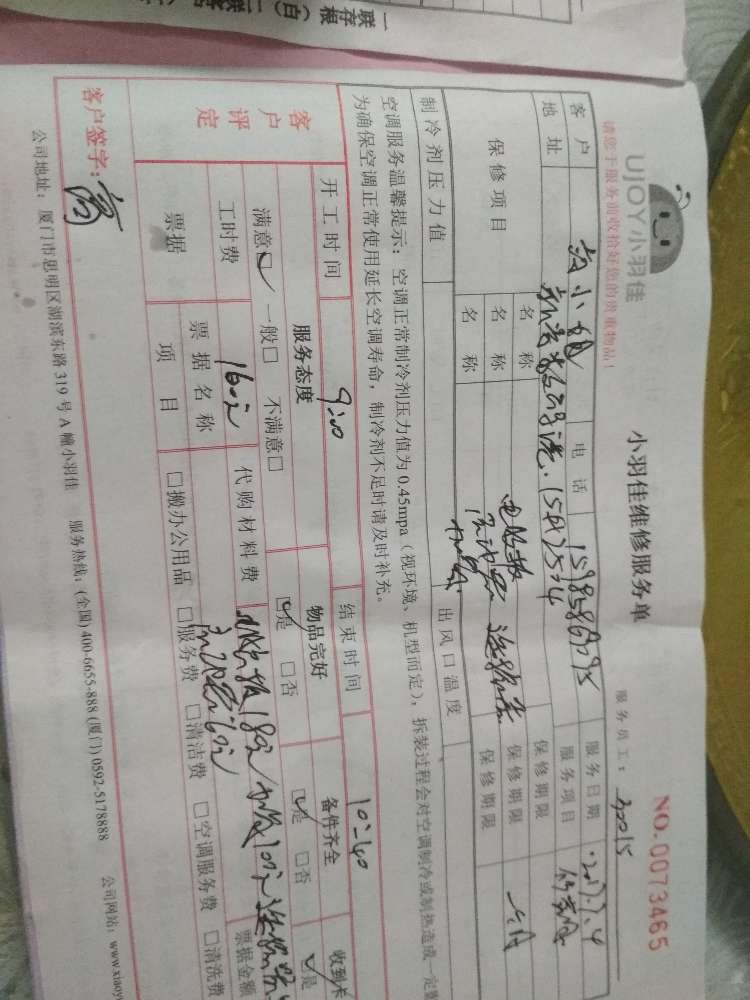 一联存根（白）二联客
UJOY小羽佳
小羽佳维修服务单
NO.0073465
请您于服务前收拾好您的贵重物品！
服务员工：
客户 小姐 电话 服务日期 2017.7.4
地址 服务项目
保修项目 名称 电脑板 保修期限
名称 连接管 保修期限
名称 加氟 保修期限
制冷剂压力值 出风口温度
空调服务温馨提示：空调正常制冷剂压力值为0.45mpa（视环境、机型而定），拆装过程会对空调制冷或制热造成一定
为确保空调正常使用延长空调寿命，制冷剂不足时请及时补充。
开工时间 9:00 结束时间 10:40
客户评定 服务态度 物品完好 备件齐全 收到
满意☑ 一般□ 不满意□ ☑是 □否 ☑是 □否 ☑是
工时费 160元 代购材料费 电脑板180元
票据 票据名称 票据金额
项目 □搬办公用品 □服务费 □清洁费 □空调服务费 □清洗费
客户签字：
公司地址：厦门市思明区湖滨东路319号A幢小羽佳 服务热线：(全国) 400-6655-888 (厦门) 0592-5178888 公司网站：www.xiaoy